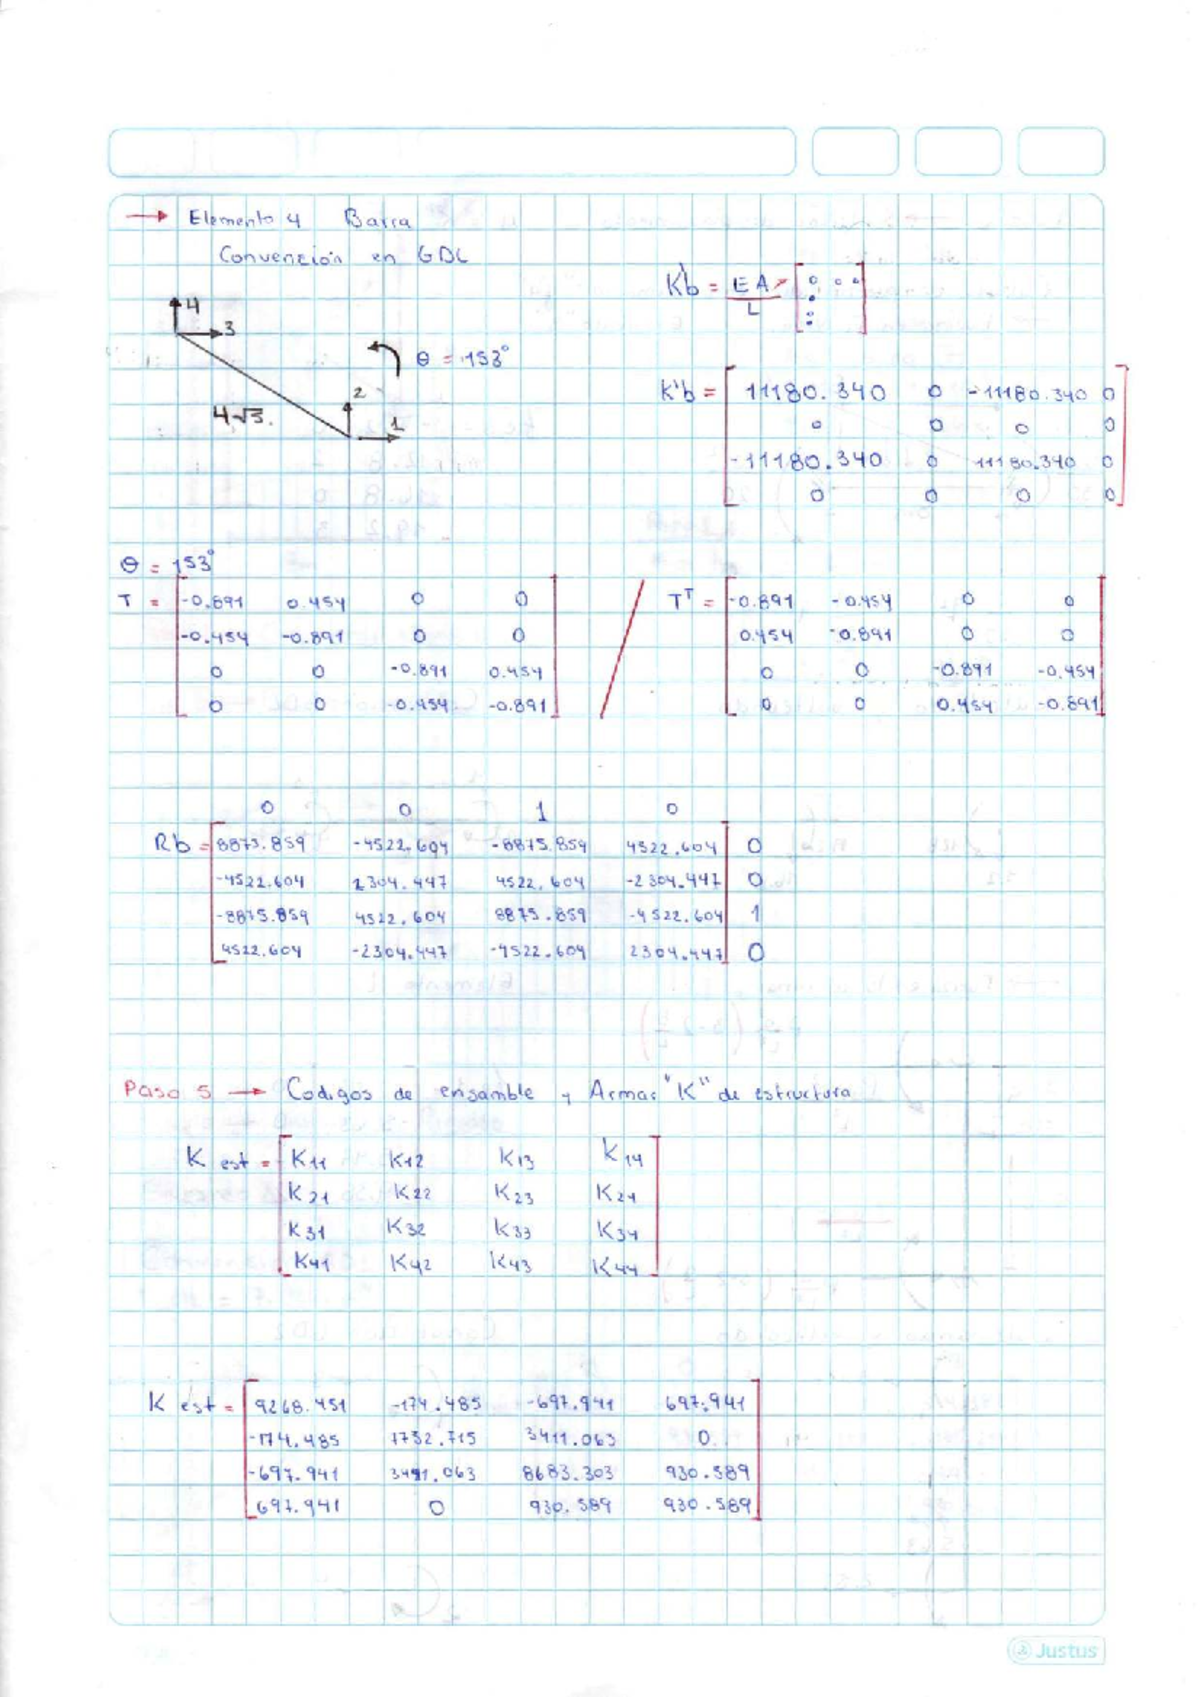 → Elemento 4 Barra
Convención en GDL
4
3
θ = 153°
2
1
4√3.
K'b = EA/L [
K'b = [ 11180.340 0 -11180.340 0
0 0 0 0
-11180.340 0 11180.340 0
0 0 0 0 ]
θ = 153°
T = [ -0.891 0.454 0 0
-0.454 -0.891 0 0
0 0 -0.891 0.454
0 0 -0.454 -0.891 ]
T^T = [ -0.891 -0.454 0 0
0.454 -0.891 0 0
0 0 -0.891 -0.454
0 0 0.454 -0.891 ]
0 0 1 0
Rb = [ 8875.859 -4522.604 -8875.859 4522.604 ] 0
-4522.604 2304.447 4522.604 -2304.447 0
-8875.859 4522.604 8875.859 -4522.604 1
4522.604 -2304.447 -4522.604 2304.447 0
Paso 5 → Codigos de ensamble y Armar "K" de estructura
K est = [ K11 K12 K13 K14
K21 K22 K23 K24
K31 K32 K33 K34
K41 K42 K43 K44 ]
K est = [ 9268.451 -174.485 -697.941 697.941
-174.485 1732.715 3411.063 0
-697.941 3411.063 8683.303 930.589
697.941 0 930.589 930.589 ]
Justus